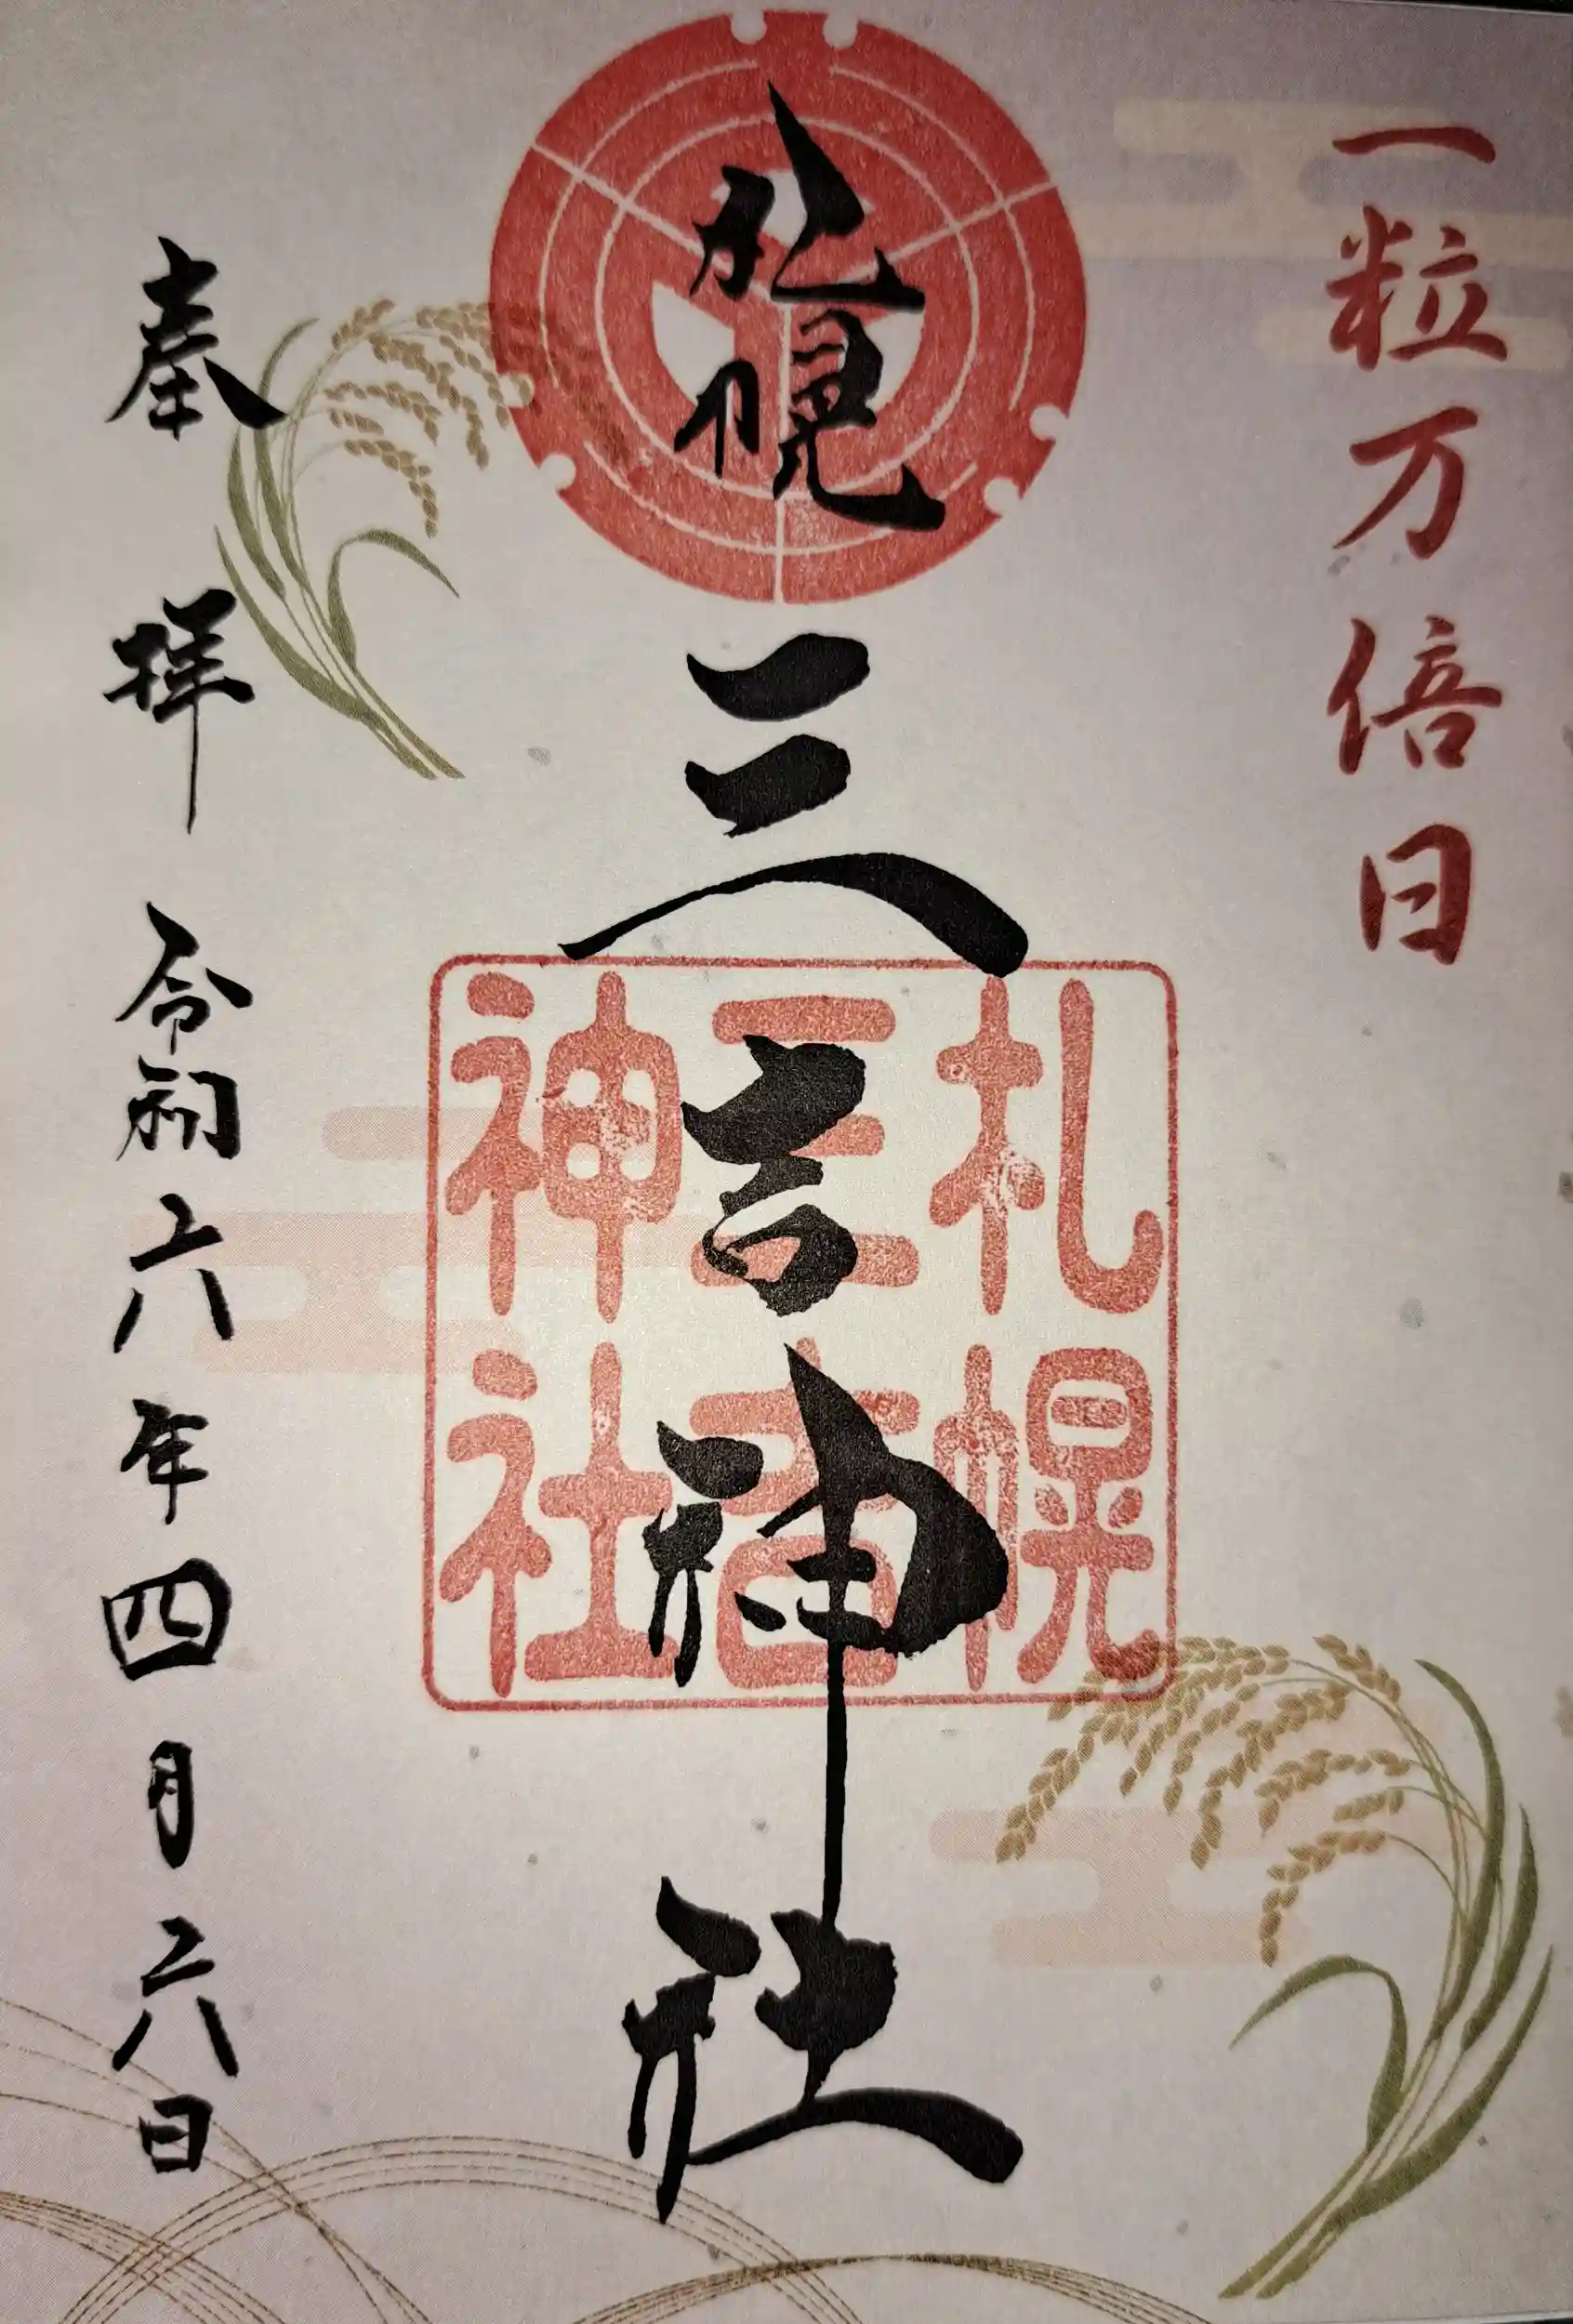 一粒万倍日
札幌
三吉神社
札幌
三吉
神社
奉拝
令和六年四月六日